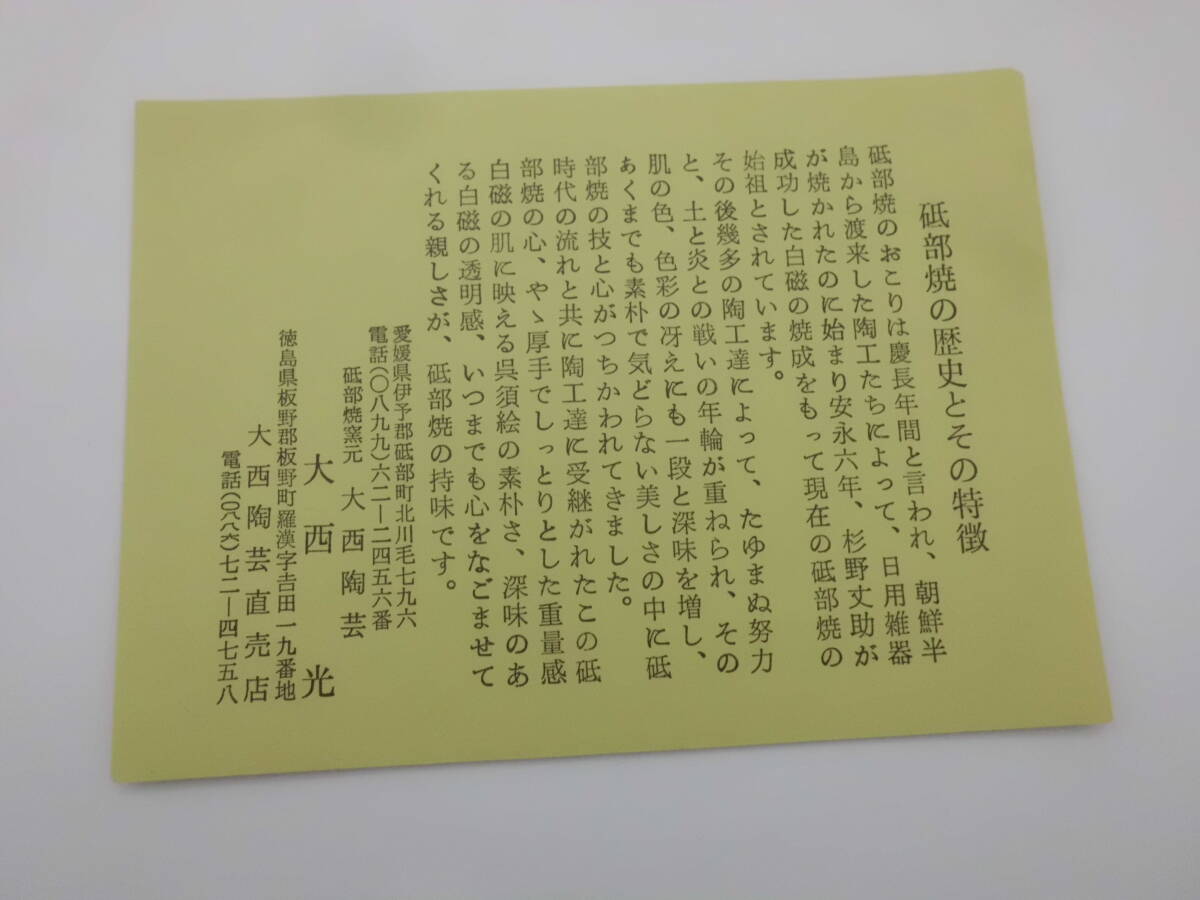 砥部焼の歴史とその特徴
砥部焼のおこりは慶長年間と言われ、朝鮮半
島から渡来した陶工たちによって、日用雑器
が焼かれたのに始まり安永六年、杉野丈助が
成功した白磁の焼成をもって現在の砥部焼の
始祖とされています。
その後幾多の陶工達によって、たゆまぬ努力
と、土と炎との戦いの年輪が重ねられ、その
肌の色、色彩の冴えにも一段と深味を増し、
あくまでも素朴で気どらない美しさの中に砥
部焼の技と心がつちかわれてきました。
時代の流れと共に陶工達に受継がれたこの砥
部焼の心、やゝ厚手でしっとりとした重量感
白磁の肌に映える呉須絵の素朴さ、深味のあ
る白磁の透明感、いつまでも心をなごませて
くれる親しさが、砥部焼の持味です。
愛媛県伊予郡砥部町北川毛七九六
電話(〇八九九)六二ー二四五六番
砥部焼窯元 大西陶芸
大西 光
徳島県板野郡板野町羅漢字吉田一九番地
大西陶芸直売店
電話(〇八八六)七二ー四七五八